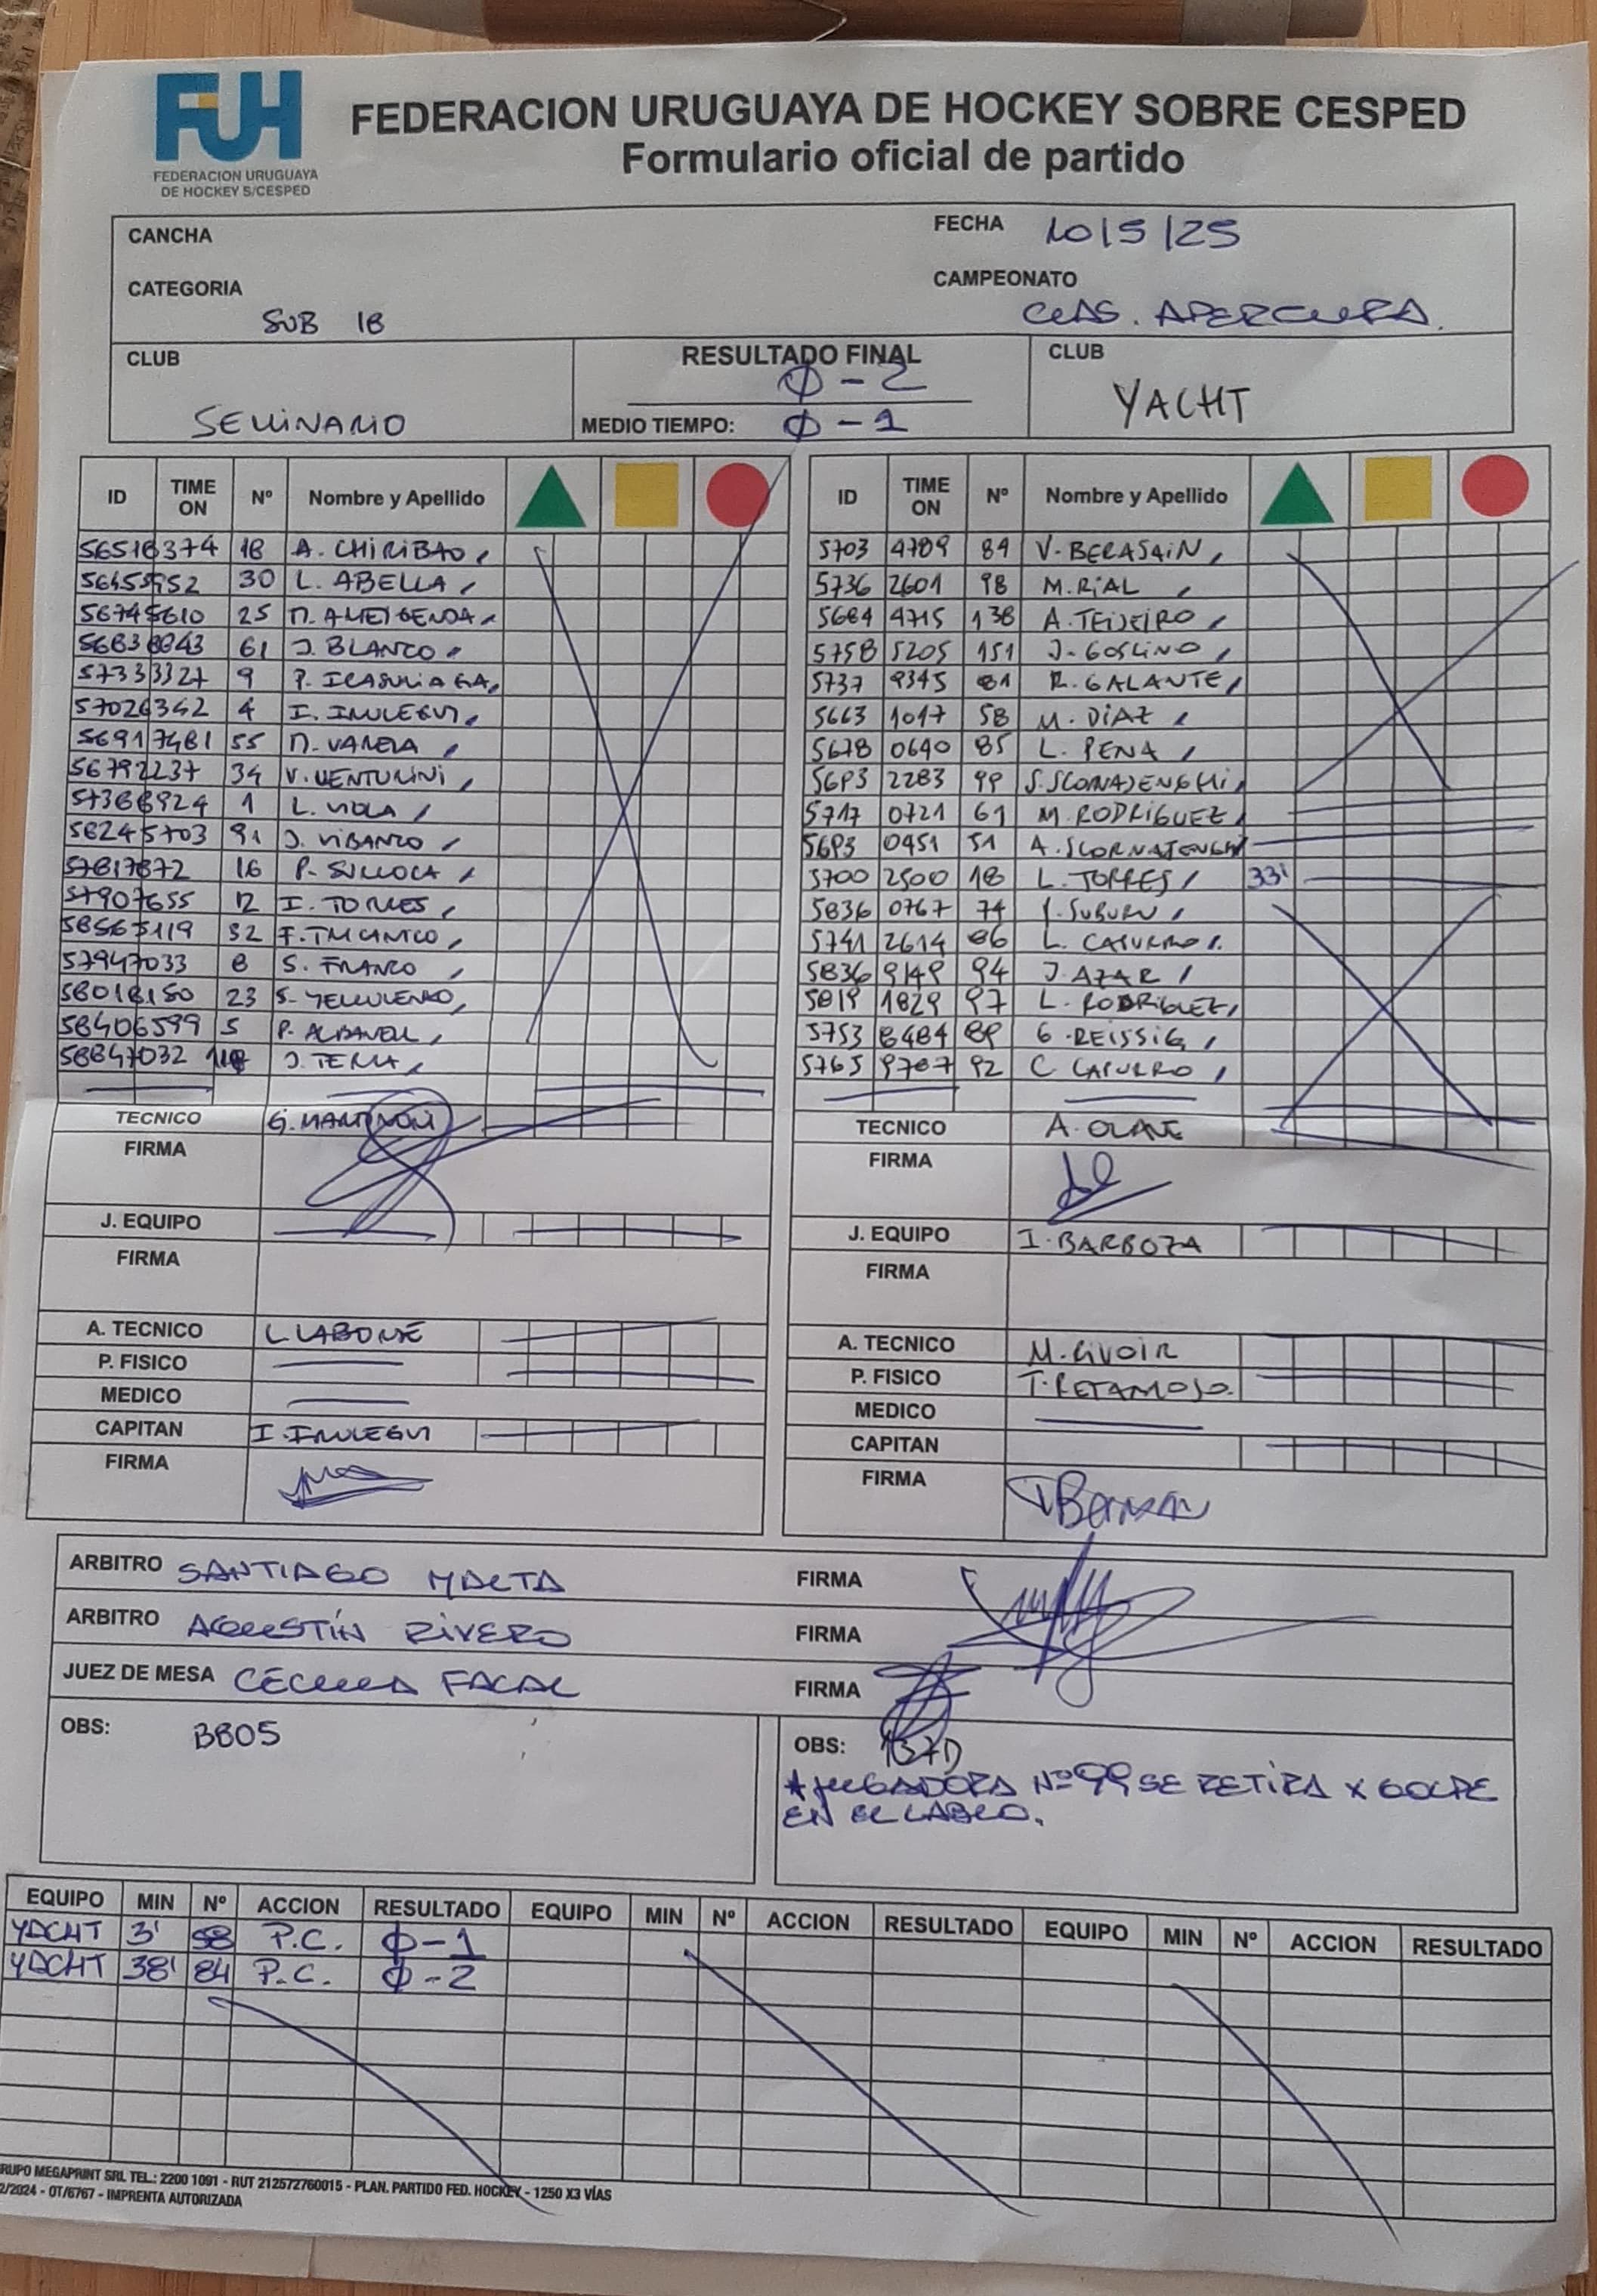 FUH
FEDERACION URUGUAYA
DE HOCKEY S/CESPED
FEDERACION URUGUAYA DE HOCKEY SOBRE CESPED
Formulario oficial de partido
CANCHA
FECHA 10/5/25
CATEGORIA SUB 18
CAMPEONATO CLAS. APERTURA.
CLUB SEMINARIO
RESULTADO FINAL Φ - 2
MEDIO TIEMPO: Φ - 1
CLUB YACHT
ID TIME ON Nº Nombre y Apellido
56518374 18 A. CHIRIBAO
56455952 30 L. ABELLA
56745610 25
56838843 61 J. BLANCO
57333327 9 P.
57026342 4 I. IRULEGUI
56917481 55 M. VARELA
56792237 34 V. VENTURINI
57388924 1 L. VIOLA
58245703 91 J.
57817872 16 P.
57907655 12 I. TORRES
58565119 32 F.
57947033 8 S. FRANCO
58018150 23 S.
58406599 5 P.
58847032 J. TERRA
TECNICO G. MARTINONI
FIRMA
J. EQUIPO
FIRMA
A. TECNICO L. LABORDE
P. FISICO
MEDICO
CAPITAN I. IRULEGUI
FIRMA
ID TIME ON Nº Nombre y Apellido
5703 4789 84 V. BERASAIN
5736 2601 98 M. RIAL
5684 4715 138 A. TEIXEIRO
5758 5205 151 J. GOSLINO
5737 9345 81 R. GALANTE
5663 1017 58 M. DIAZ
5678 0640 85 L. PENA
5693 2283 99 S. SCORNAJENGHI
5717 0721 61 M. RODRIGUEZ
5693 0451 51 A. SCORNAJENGHI
5700 2500 18 L. TORRES 33'
5836 0767 74 SUBURU
5741 2614 86 L. CAPURRO
5836 9149 94 J. AZAR
5819 1829 97 L. RODRIGUEZ
5753 8484 89 G. REISSIG
5765 9787 92 C. CAPURRO
TECNICO A. OLAVE
FIRMA
J. EQUIPO I. BARBOZA
FIRMA
A. TECNICO M. GIVOIR
P. FISICO T. RETAMOSO.
MEDICO
CAPITAN
FIRMA
ARBITRO SANTIAGO MALTA FIRMA
ARBITRO AGUSTÍN RIVERO FIRMA
JUEZ DE MESA CECILIA FACAL FIRMA
OBS: BBOS
OBS:
* JUGADORA Nº 99 SE RETIRA X GOLPE
EN EL LABIO.
EQUIPO MIN Nº ACCION RESULTADO EQUIPO MIN Nº ACCION RESULTADO EQUIPO MIN Nº ACCION RESULTADO
YACHT 3' 58 P.C. Φ - 1
YACHT 38' 84 P.C. Φ - 2
RUPO MEGAPRINT SRL TEL.: 2200 1091 - RUT 212572760015 - PLAN. PARTIDO FED. HOCKEY - 1250 X3 VÍAS
2/2024 - OT/6767 - IMPRENTA AUTORIZADA